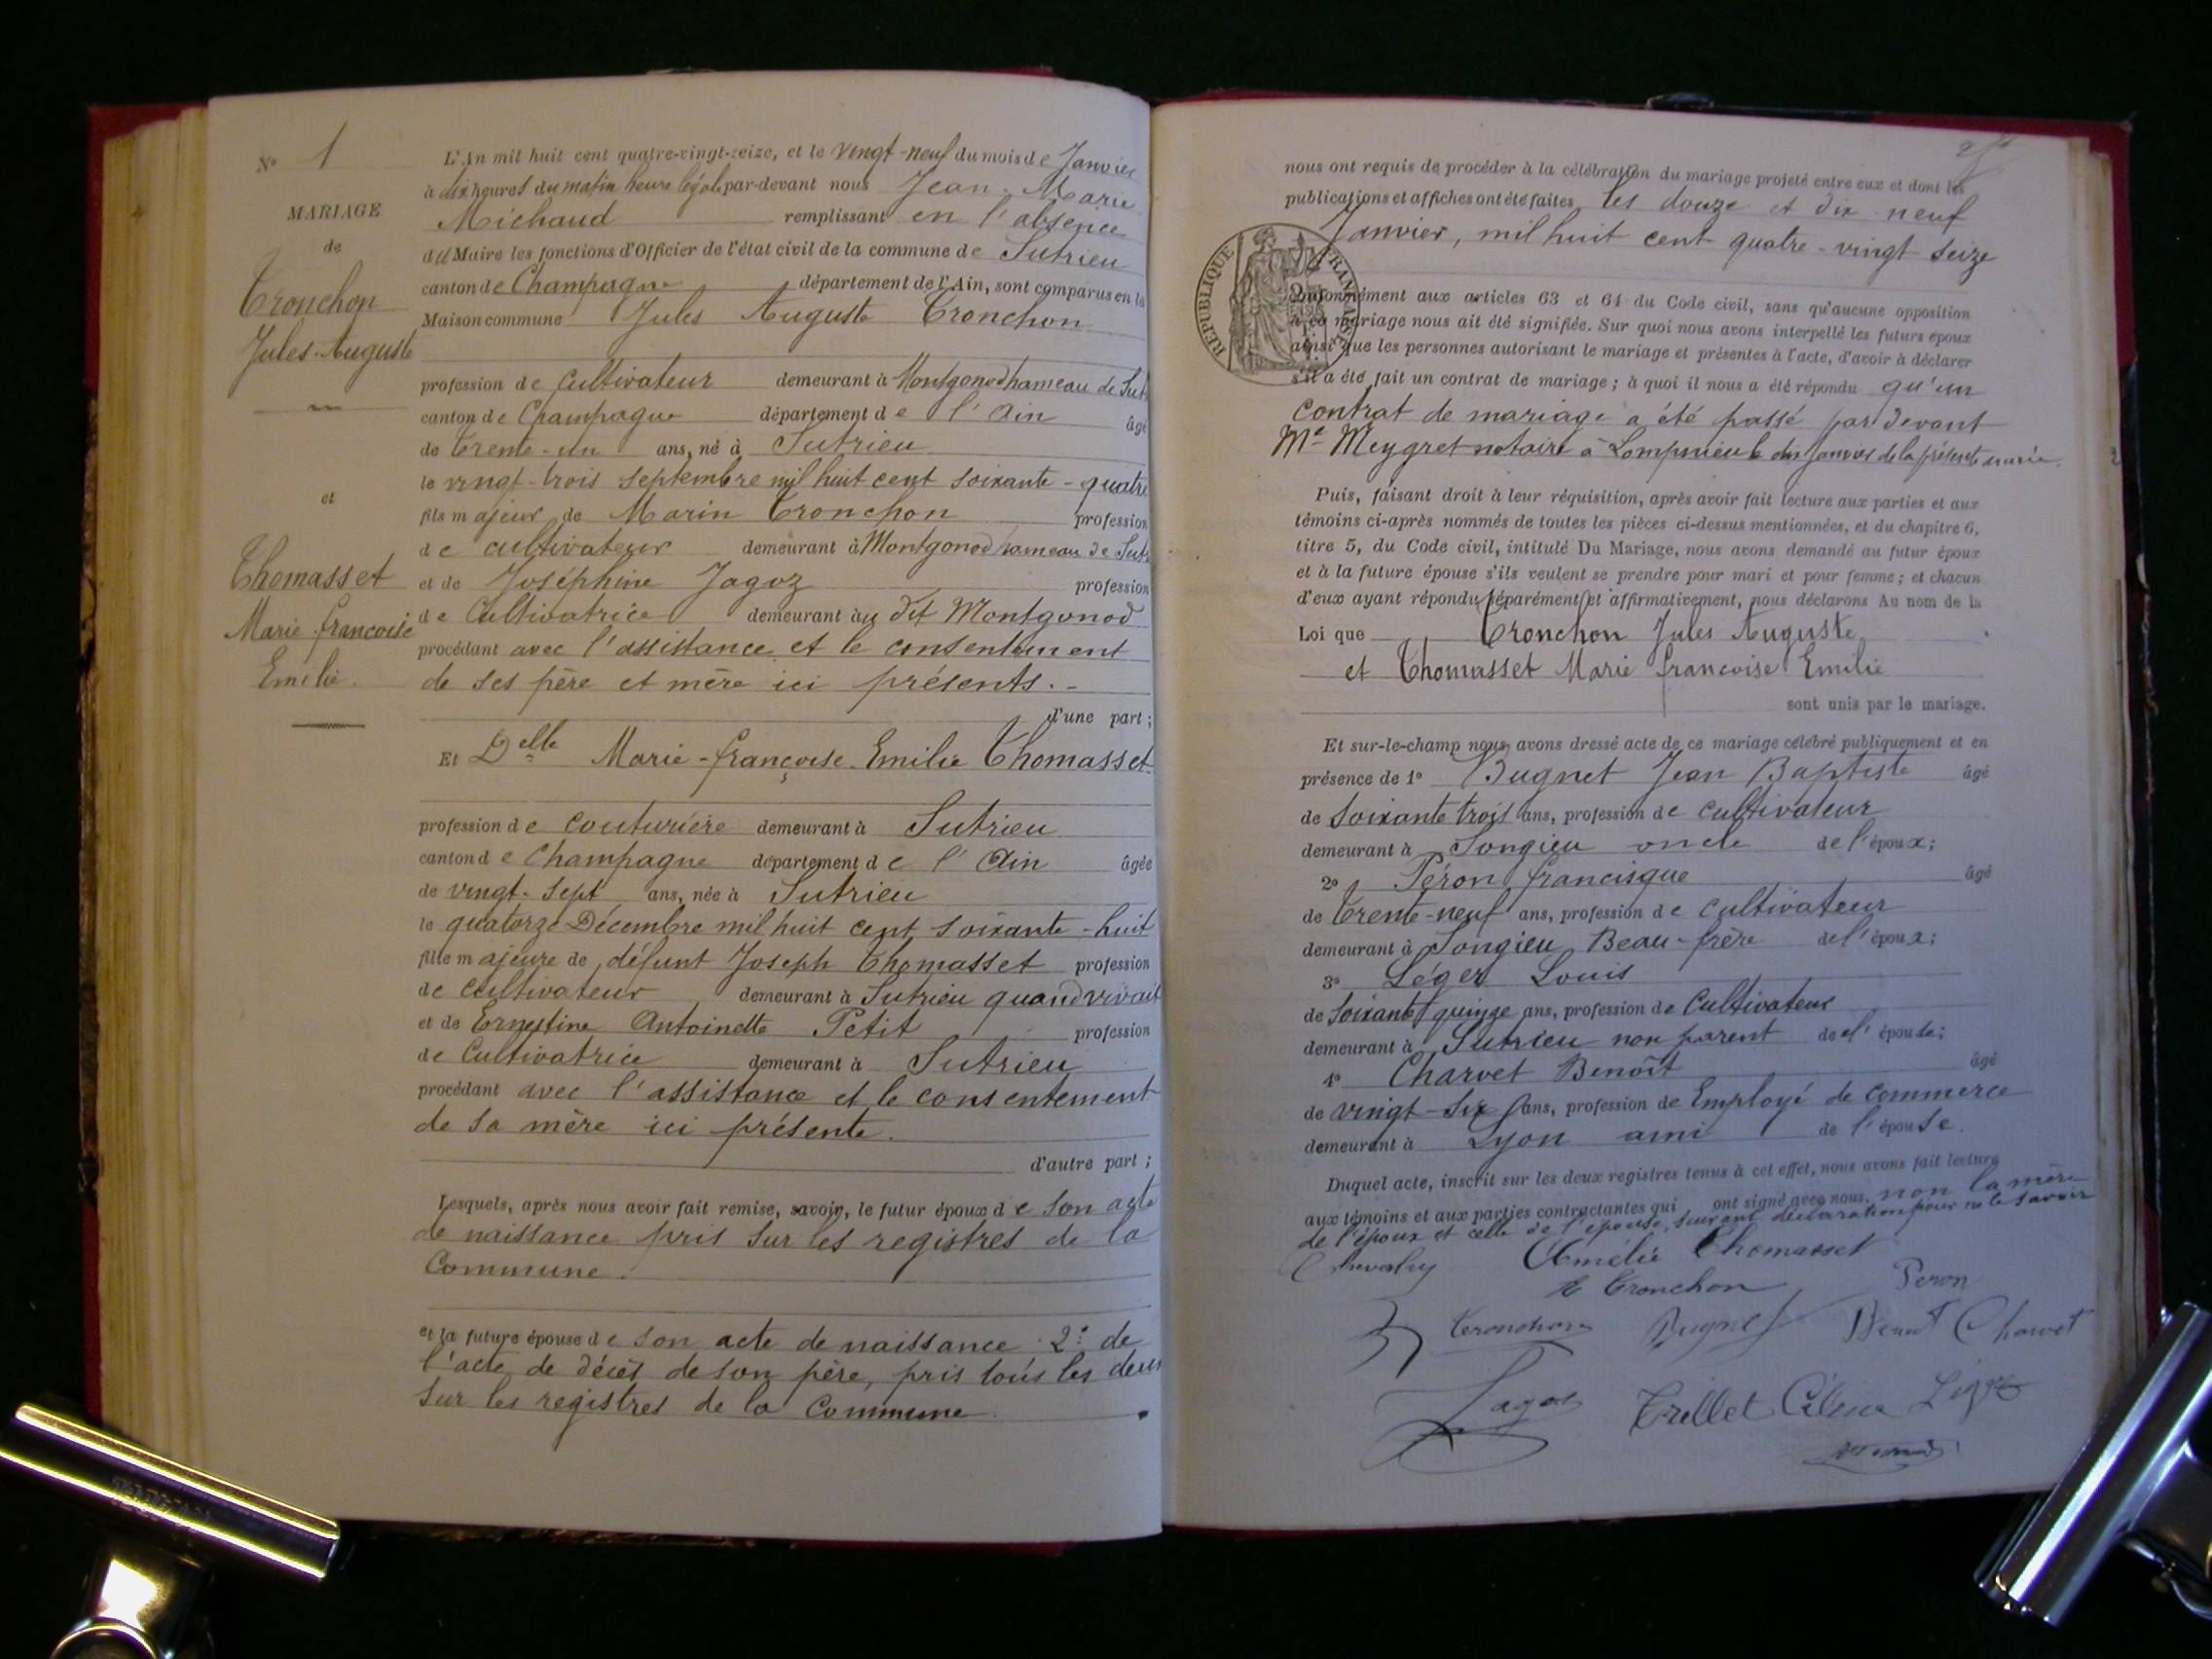 No 1
MARIAGE
de
Tronchon
Jules-Auguste
et
Thomasset
Marie françoise
Emilie.
L'An mil huit cent quatre-vingt-seize, et le vingt-neuf du mois de Janvier
à dix heures du matin heure légale par-devant nous Jean-Marie
Michaud remplissant en l'absence
du Maire les fonctions d'Officier de l'état civil de la commune de Sutrieu
canton de Champagne département de l'Ain, sont comparus en la
Maison commune Jules Auguste Tronchon
profession de Cultivateur demeurant à Montgonod hameau de Sut
canton de Champagne département de l'Ain âgé
de trente-un ans, né à Sutrieu
le vingt-trois septembre mil huit cent soixante-quatre
fils majeur de Marin Tronchon profession
de cultivateur demeurant à Montgonod hameau de Sut
et de Joséphine Jagoz profession
de Cultivatrice demeurant au dit Montgonod
procédant avec l'assistance et le consentement
de ses père et mère ici présents.-
d'une part;
Et Delle Marie-françoise-Emilie Thomasset
profession de couturière demeurant à Sutrieu
canton de Champagne département de l'Ain âgée
de vingt-sept ans, née à Sutrieu
le quatorze Décembre mil huit cent soixante-huit
fille majeure de défunt Joseph Thomasset profession
de cultivateur demeurant à Sutrieu quand vivait
et de Ernestine Antoinette Petit profession
de Cultivatrice demeurant à Sutrieu
procédant avec l'assistance et le consentement
de sa mère ici présente.
d'autre part;
Lesquels, après nous avoir fait remise, savoir, le futur époux de son acte
de naissance pris sur les registres de la
Commune.
et la future épouse de son acte de naissance 2° de
l'acte de décès de son père, pris tous les deux
sur les registres de la Commune.
nous ont requis de procéder à la célébration du mariage projeté entre eux et dont les
publications et affiches ont été faites les douze et dix neuf
Janvier, mil huit cent quatre-vingt seize
RÉPUBLIQUE FRANÇAISE
Conformément aux articles 63 et 64 du Code civil, sans qu'aucune opposition
à ce mariage nous ait été signifiée. Sur quoi nous avons interpellé les futurs époux
ainsi que les personnes autorisant le mariage et présentes à l'acte, d'avoir à déclarer
s'il a été fait un contrat de mariage; à quoi il nous a été répondu qu'un
contrat de mariage a été passé par devant
Me Meygret notaire à Lompnieu le dix janvier de la présente année.
Puis, faisant droit à leur réquisition, après avoir fait lecture aux parties et aux
témoins ci-après nommés de toutes les pièces ci-dessus mentionnées, et du chapitre 6,
titre 5, du Code civil, intitulé Du Mariage, nous avons demandé au futur époux
et à la future épouse s'ils veulent se prendre pour mari et pour femme; et chacun
d'eux ayant répondu séparément et affirmativement, nous déclarons Au nom de la
Loi que Tronchon Jules Auguste
et Thomasset Marie françoise Emilie
sont unis par le mariage.
Et sur-le-champ nous avons dressé acte de ce mariage célébré publiquement et en
présence de 1° Bugnet Jean Baptiste âgé
de Soixante trois ans, profession de cultivateur
demeurant à Songieu oncle de l'époux;
2° Péron francisque âgé
de trente-neuf ans, profession de cultivateur
demeurant à Songieu Beau-frère de l'époux;
3° Léger Louis
de Soixante quinze ans, profession de Cultivateur
demeurant à Sutrieu non parent de l'épouse;
4° Charvet Benoît âgé
de vingt-six ans, profession de Employé de commerce
demeurant à Lyon ami de l'épouse.
Duquel acte, inscrit sur les deux registres tenus à cet effet, nous avons fait lecture
aux témoins et aux parties contractantes qui ont signé avec nous, non la mère
de l'époux et celle de l'épouse, suivant déclaration pour ne le savoir
Amélie Thomasset
Tronchon Peron
Tronchon Bugnet Benoit Charvet
Jagoz Trillet Léger